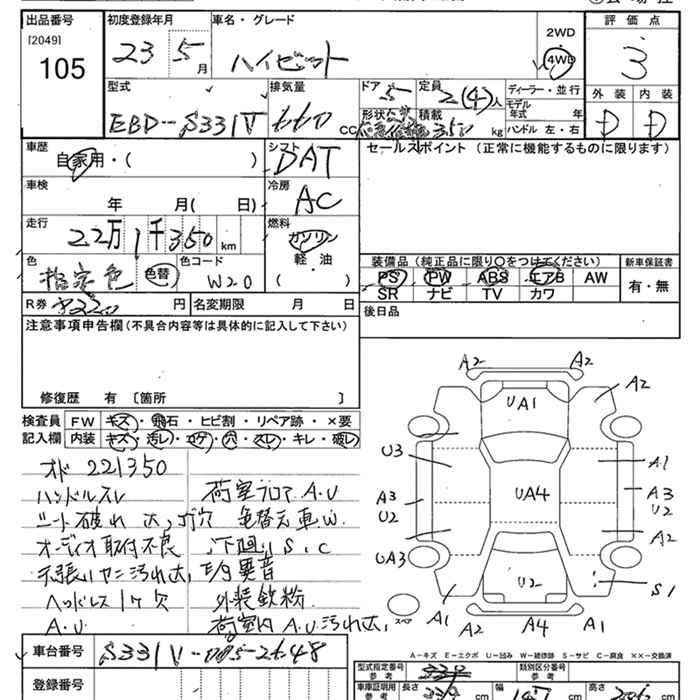 出品番号 初度登録年月 車名・グレード 評価点
[2049]
105
23 5 月 ハイゼット 2WD 4WD 3
型式 排気量 ドア 5 定員 2(4)人 ディーラー・並行 外装 内装
EBD-S331V 660 CC 形状 積載 350 kg モデル年式 年 D D
ハンドル 左・右
車歴 シフト セールスポイント (正常に機能するものに限ります)
自家用・( ) DAT
車検 冷房
年 月( 日) AC
走行 燃料
22万1千350 km ガソリン
軽・油
( )
色 色替 色コード 装備品 (純正品に限り○をつけてください) 新車保証書
指定色 W20 PS PW ABS エアB AW 有・無
SR ナビ TV カワ
R券 円 名変期限 月 日 後日品
注意事項申告欄 (不具合内容等は具体的に記入して下さい)
修復歴 有 〔箇所 〕
検査員 FW キズ・飛石・ヒビ割・リペア跡・×要
記入欄 内装 キズ・汚レ・コゲ・穴・スレ・キレ・破レ
オド 221350
ハンドルスレ 荷室フロア A.U
シート破れ 大、コゲ穴 色替え車W.
オーディオ取付不良 下廻り S.C
天張ハヤニ汚れ大、E/G異音
ヘッドレス1ケ欠 外装鉄粉
A.U 荷室内 A.U 汚れ大、
A2 A2
UA1 A2
U3 A1
UA4
A3 A3
U2 U2
A2
UA3
U2 S1
A1 A2 A4 A1
A-キズ E-エクボ U-凹み W-補修跡 S-サビ C-腐食 ××-交換済
車台番号 S331V-0052648
型式指定番号 参考 類別区分番号 参考
登録番号
車庫証明用 参考 長さ 339 cm 幅 147 cm 高さ cm